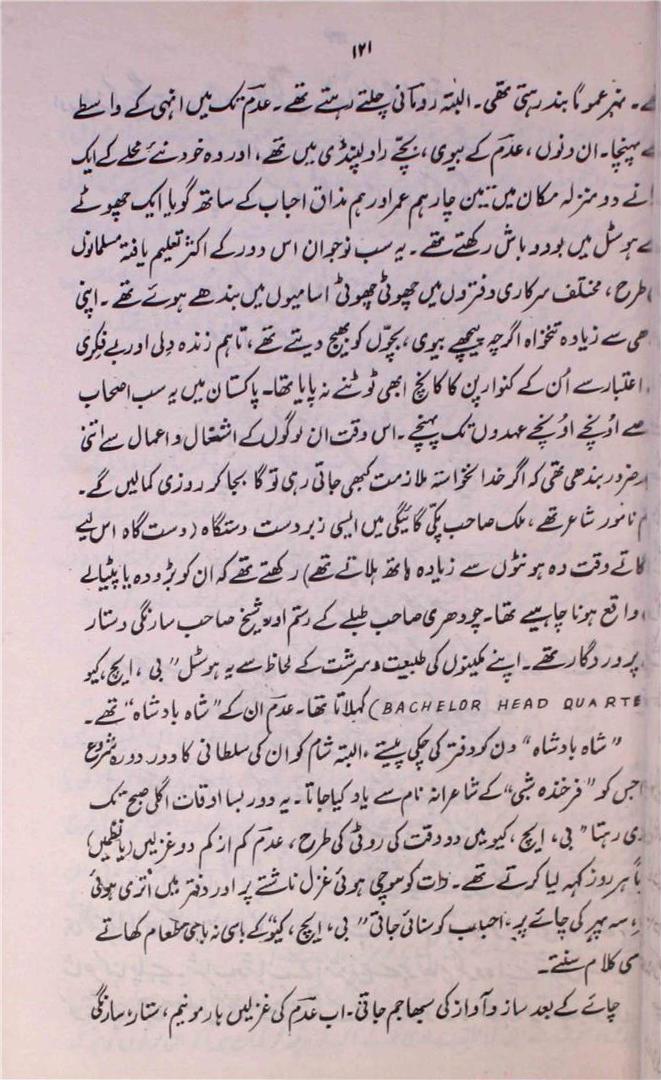 ۱۲۱
ے۔ نہر عموماً بند رہتی تھی۔ البتہ رومانی چلتے رہتے تھے۔ عدمؔ تک میں انہی کے واسطے
ے پہنچا۔ ان دنوں، عدمؔ کے بیوی، بچّے راولپنڈی میں تھے، اور وہ خود نئے محلے کے ایک
انے دو منزلہ مکان میں تین چار ہم عمر اور ہم مذاق احباب کے ساتھ گویا ایک چھوٹے
ے ہوسٹل میں بود و باش رکھتے تھے۔ یہ سب نوجوان اس دور کے اکثر تعلیم یافتہ مسلمانوں
طرح، مختلف سرکاری دفتروں میں چھوٹی چھوٹی اسامیوں میں بندھے ہوئے تھے۔ اپنی
ھی سے زیادہ تنخواہ اگرچہ پیچھے بیوی، بچوں کو بھیج دیتے تھے، تاہم زندہ دِلی اور بے فِکری
اعتبار سے اُن کے کنوارپن کا کانچ ابھی ٹوٹنے نہ پایا تھا۔ پاکستان میں یہ سب اصحاب
سے اونچے اونچے عہدوں تک پہنچے۔ اس وقت ان لوگوں کے اشغال و اعمال سے اتنی
ضرور بندھی تھی کہ اگر خدا نخواستہ ملازمت کبھی جاتی رہی تو گا بجا کر روزی کمالیں گے۔
م نامور شاعر تھے، ملک صاحب پکّی گائیگی میں ایسی زبردست دستگاہ (دست گاہ اس لیے
گاتے وقت وہ ہونٹوں سے زیادہ ہاتھ ہلاتے تھے) رکھتے تھے کہ ان کو بڑودہ یا پٹیالے
واقع ہونا چاہیے تھا۔ چودھری صاحب طبلے کے رستم اور شیخ صاحب سارنگی و ستار
پروردگار تھے۔ اپنے مکینوں کی طبیعت و سرشت کے لحاظ سے یہ ہوسٹل "بی، ایچ، کیو
BACHELOR HEAD QUARTE) کہلاتا تھا۔ عدمؔ ان کے "شاہ بادشاہ" تھے۔
"شاہ بادشاہ" دن کو دفتر کی چکی پیستے، البتہ شام کو ان کی سلطانی کا دور دورہ شروع
جس کو "فرخندہ شبی" کے شاعرانہ نام سے یاد کیا جاتا۔ یہ دور بسا اوقات اگلی صبح تک
ری رہتا "بی، ایچ، کیو میں دو وقت کی روٹی کی طرح، عدمؔ کم از کم دو غزلیں (یا نظمیں)
باً ہر روز کہہ لیا کرتے تھے۔ رات کو سوچی ہوئی غزل ناشتے پر اور دفتر میں اتری ہوئی
، سہ پہر کی چائے پر، احباب کو سنائی جاتی "بی، ایچ، کیو" کے باسی نہ باسی طعام کھاتے
ی کلام سنتے۔
چائے کے بعد ساز و آواز کی سبھا جم جاتی۔ اب عدمؔ کی غزلیں ہارمونیم، ستار، سارنگی